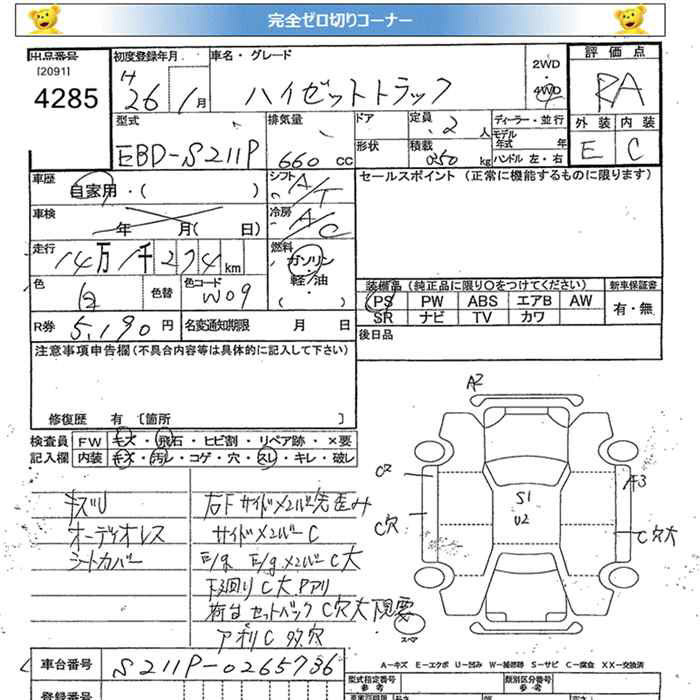 完全ゼロ切りコーナー
出品番号
[2091]
4285
初度登録年月
H
26 1月
車名・グレード
ハイゼットトラック
2WD
・
4WD
評価点
RA
外装 内装
E C
型式
EBD-S211P
排気量
660 CC
ドア
形状
定員
2 人
積載
0350 kg
ディーラー・並行
モデル
年式 年
ハンドル 左・右
車歴
自家用・( )
シフト
A/T
セールスポイント (正常に機能するものに限ります)
車検
年 月( 日)
冷房
A/C
走行
14万1千274km
燃料
ガソリン
軽油
( ・ )
色
白
色替
色コード
W09
装備品 (純正品に限り○をつけてください)
新車保証書
PS PW ABS エアB AW
SR ナビ TV カワ
有・無
R券 5,190円
名変通知期限 月 日
後日品
注意事項申告欄(不具合内容等は具体的に記入して下さい)
修復歴 有 [箇所 ]
検査員
記入欄
FW キズ・飛石・ヒビ割・リペア跡・×要
内装 キズ・汚レ・コゲ・穴・スレ・キレ・破レ
キズU
オーディオレス
シートカバー
右下サイドメンバー先歪み
サイドメンバーC
E/g E/gメンバーC大
下廻りC大Pアリ
荷台セットバックC穴大現要
アオリC多穴
A2
C2
C穴
S1
U2
A3
C穴大
スペア
A−キズ E−エクボ U−凹み W−補修跡 S−サビ C−腐食 XX−交換済
車台番号 S211P-0265736
型式指定番号
参考
類別区分番号
参考
登録番号